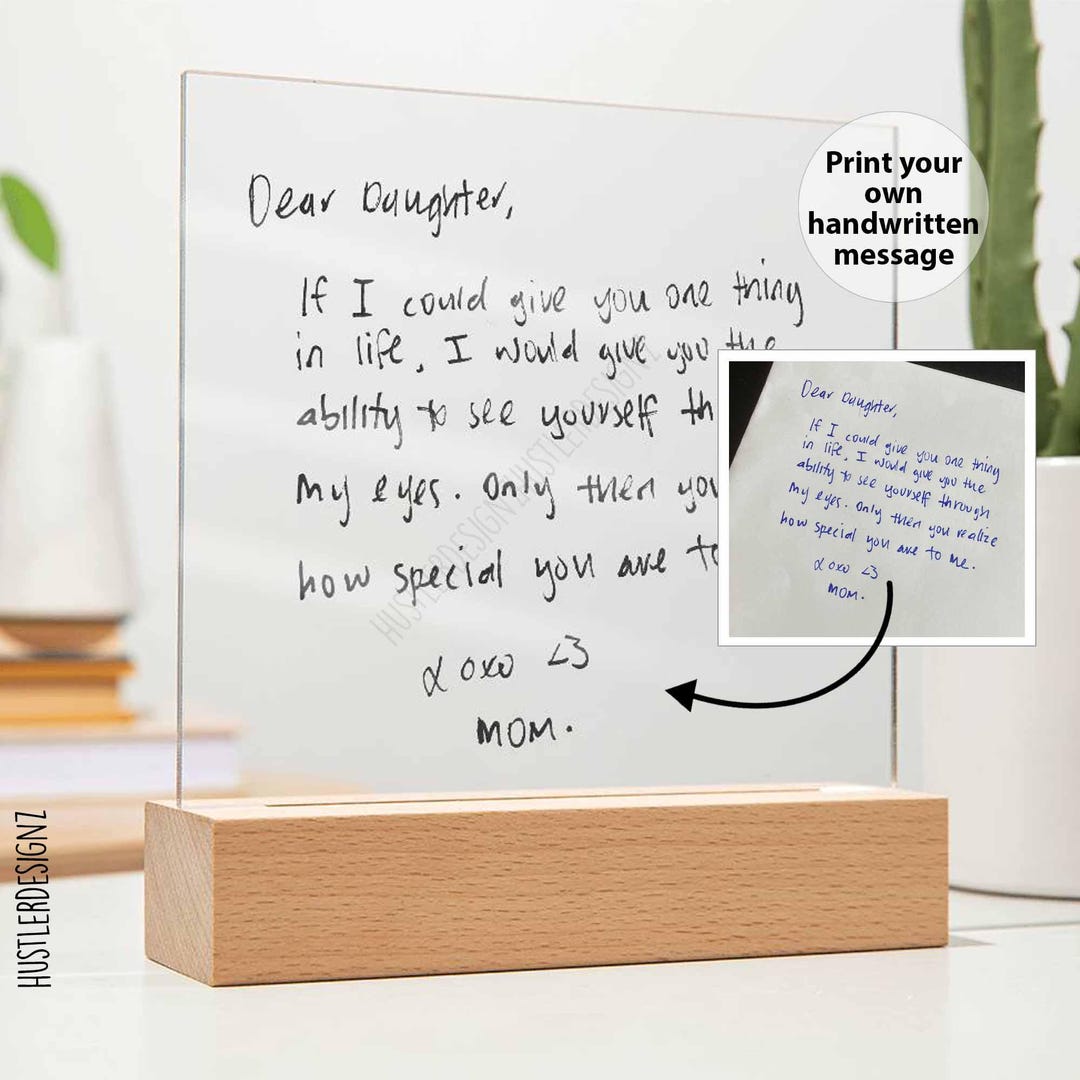 Dear Daughter,
If I could give you one thing
in life, I would give you the
ability to see yourself th
my eyes. Only then you
how special you are to
xoxo <3
MOM.
Print your
own
handwritten
message
Dear Daughter,
If I could give you one thing
in life, I would give you the
ability to see yourself through
my eyes. Only then you realize
how special you are to me.
xoxo <3
MOM.
HUSTLERDESIGNZ
HUSTLERDESIGNZ
HUSTLERDESIGNZ